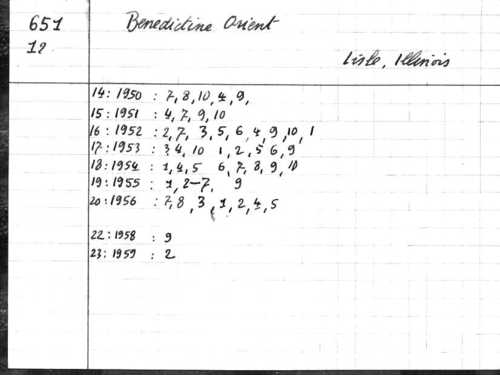 651 Benedictine Orient
12
Lisle, Illinois
14: 1950 : 7, 8, 10, 4, 9,
15: 1951 : 4, 7, 9, 10
16: 1952 : 2, 7, 3, 5, 6, 4, 9, 10, 1
17: 1953 : 3 4, 10 1, 2, 5 6, 9
18: 1954 : 1, 4, 5 6, 7, 8, 9, 10
19: 1955 : 1, 2-7, 9
20: 1956 : 7, 8, 3, 1, 2, 4, 5
22: 1958 : 9
23: 1959 : 2